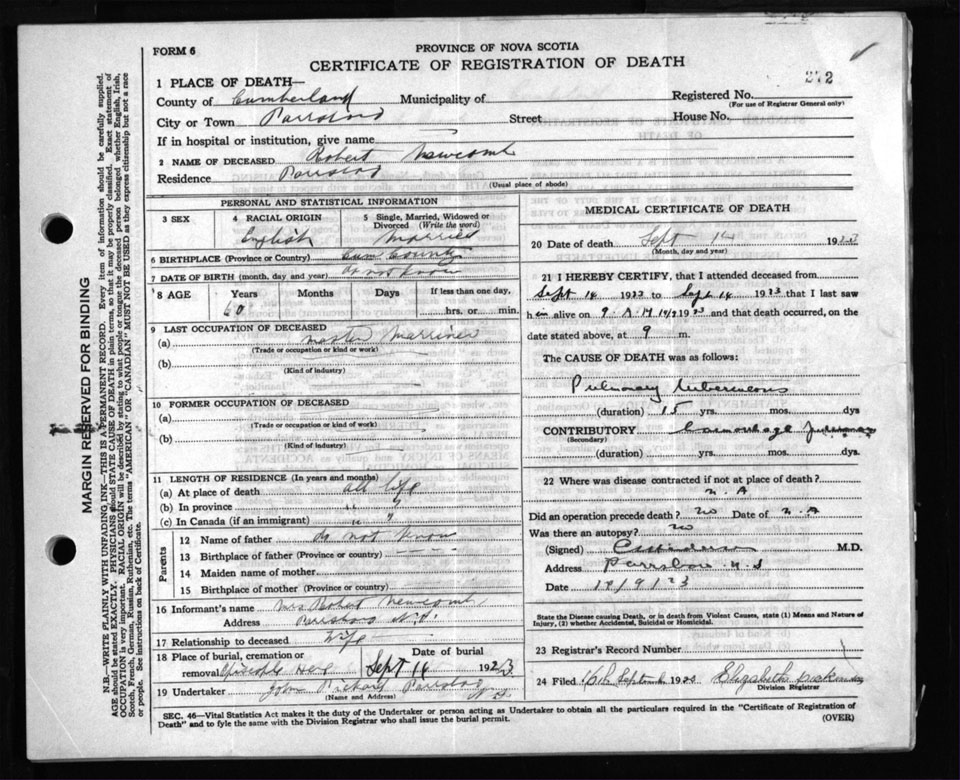 FORM 6
PROVINCE OF NOVA SCOTIA
CERTIFICATE OF REGISTRATION OF DEATH
272
1 PLACE OF DEATH—
County of Cumberland Municipality of Registered No.
(For use of Registrar General only)
City or Town Parrsboro Street House No.
If in hospital or institution, give name
2 NAME OF DECEASED Robert Newcomb
Residence Parrsboro
(Usual place of abode)
PERSONAL AND STATISTICAL INFORMATION
3 SEX
4 RACIAL ORIGIN
English
5 Single, Married, Widowed or Divorced (Write the word)
Married
6 BIRTHPLACE (Province or Country) Cum County
7 DATE OF BIRTH (month, day, and year) do not know
8 AGE Years Months Days If less than one day,
60 hrs. or min.
9 LAST OCCUPATION OF DECEASED
(a) Master Marriner
(Trade or occupation or kind or work)
(b)
(Kind of industry)
10 FORMER OCCUPATION OF DECEASED
(a)
(Trade or occupation or kind or work)
(b)
(Kind of industry)
11 LENGTH OF RESIDENCE (In years and months)
(a) At place of death all life
(b) In province " "
(c) In Canada (if an immigrant) " "
Parents
12 Name of father do not know
13 Birthplace of father (Province or country) - - - -
14 Maiden name of mother
15 Birthplace of mother (Province or country)
16 Informant's name Mrs Robert Newcomb
Address Parrsboro N.S.
17 Relationship to deceased Wife
18 Place of burial, cremation or removal Date of burial
Sept 16 1923
19 Undertaker John Parrsboro N.S.
(Name and Address)
MEDICAL CERTIFICATE OF DEATH
20 Date of death Sept 14 1923
(Month, day and year)
21 I HEREBY CERTIFY, that I attended deceased from
Sept 14 1923 to Sept 14 1923 that I last saw
him alive on 9 A.M 14/9 1923 and that death occurred, on the
date stated above, at 9 m.
The CAUSE OF DEATH was as follows:
Pulmonary tuberculosis
(duration) 15 yrs. mos. dys
CONTRIBUTORY Haemorrhage pulmonary
(Secondary)
(duration) yrs. mos. dys.
22 Where was disease contracted if not at place of death?
N.A
Did an operation precede death? no Date of N.A
Was there an autopsy? no
(Signed) M.D.
Address Parrsboro N.S
Date
State the Disease causing Death, or in death from Violent Causes, state (1) Means and Nature of Injury, (2) whether Accidental, Suicidal or Homicidal.
23 Registrar's Record Number
24 Filed 16th September 1923 Elizabeth
Division Registrar
SEC. 46—Vital Statistics Act makes it the duty of the Undertaker or person acting as Undertaker to obtain all the particulars required in the "Certificate of Registration of
Death" and to fyle same with the Division Registrar who shall issue the burial permit.
(OVER)
MARGIN RESERVED FOR BINDING
N.B.—WRITE PLAINLY WITH UNFADING INK—THIS IS A PERMANENT RECORD. Every item of information should be carefully supplied.
AGE should be stated EXACTLY. PHYSICIANS should STATE CAUSE OF DEATH in plain terms, so that it may be properly classified. Exact statement of
OCCUPATION is very important. RACIAL ORIGIN will be described by stating to what people or tongue the deceased person belonged whether English, Irish,
Scotch, French, German, Russian, Ruthenian, etc. The terms "AMERICAN" OR "CANADIAN" MUST NOT BE USED as they express citizenship but not a race
or people. See instructions on back of Certificate.